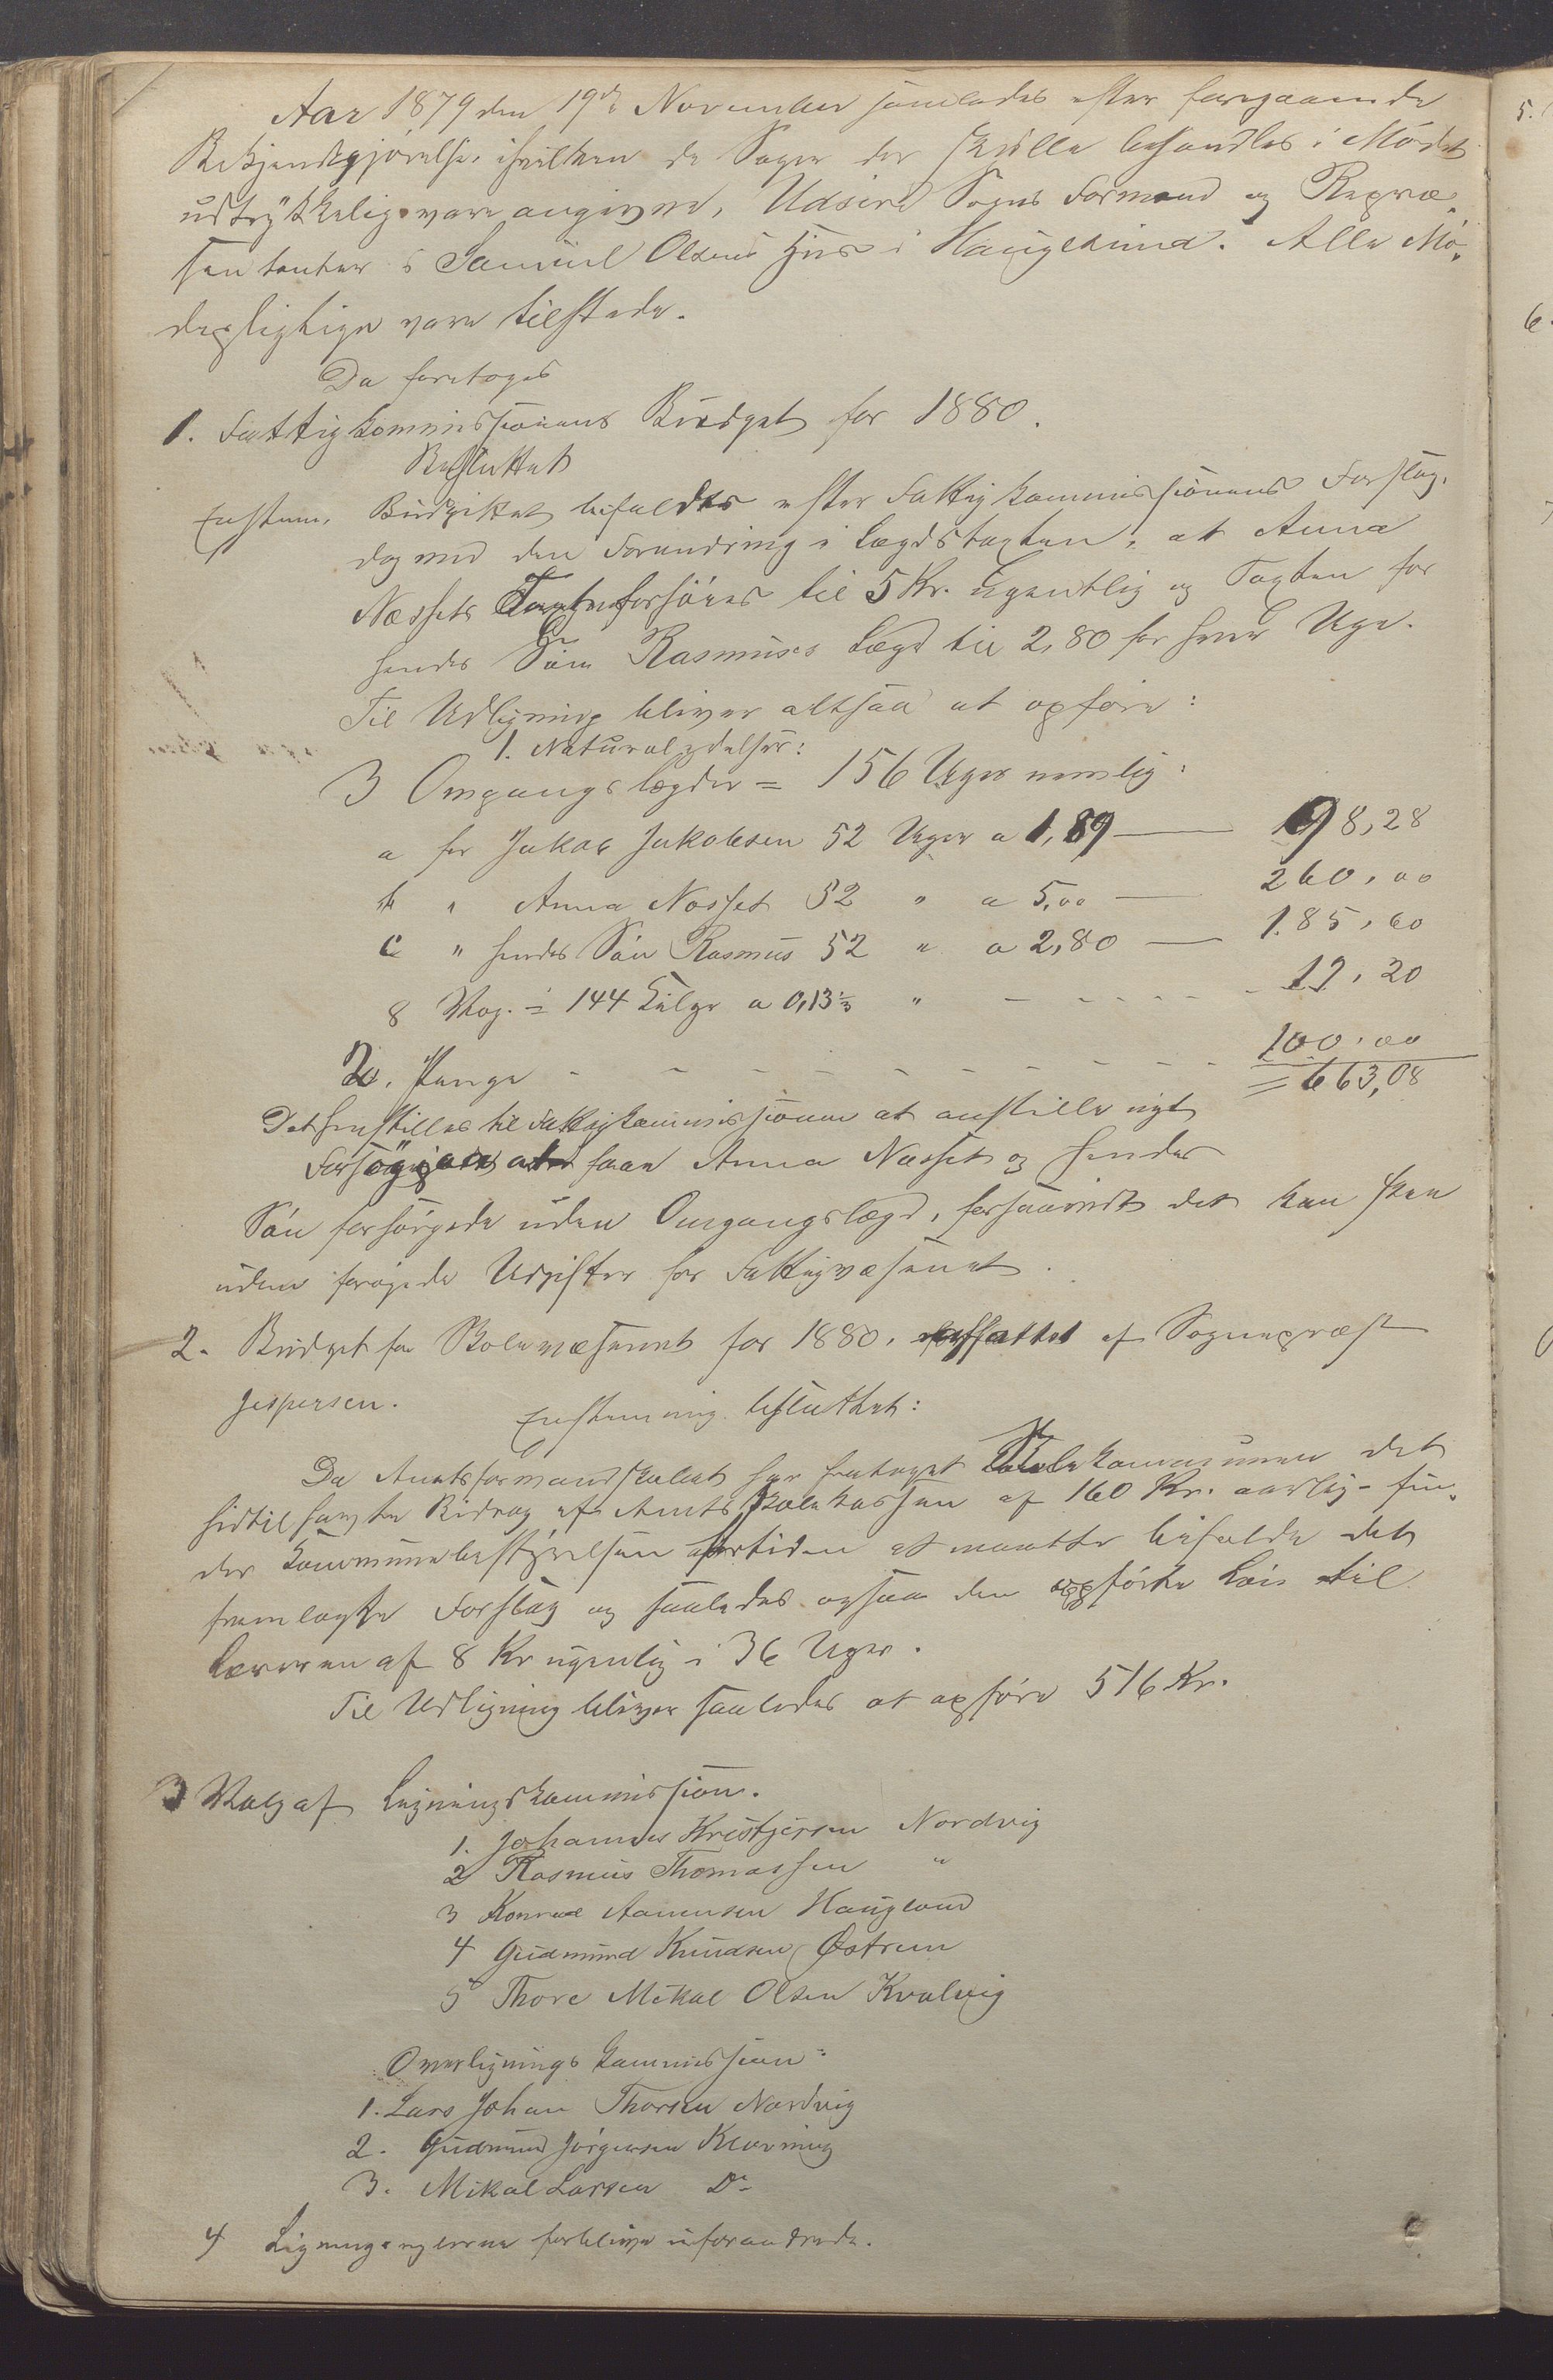 Aar 1879 den 19de November samledes efter foregaaende
Bekjendtgjørelse, ihvilken de Sager der skulle behandles i Mødet
udtrykkelig vare angivne, Udsire Sogns Formænd og Repræ-
sentanter i Samuel Olsens Hus i Haugesund. Alle Mø-
depligtige vare tilstede.
Da foretoges
1. Fattigkommissionens Budget for 1880.
Besluttet
Enstem. Budgettet bifaldes efter Fattigkommissionens Forslag,
dog med den Forandring i Lægdstaxten, at Anna
Næssets Taxt forhøies til 5 Kr. ugentlig og Taxten for
hendes Søn Rasmus's Lægd til 2,80 for hver Uge.
Til Udligning bliver altsaa at opføre:
1. Naturalydelser:
3 Omgangslægder = 156 Uger nemlig:
a for Jakob Jakobsen 52 Uger a 1,89 — 98,28
b " Anna Nosset 52 " a 5,00 — 260,00
c " hendes Søn Rasmus 52 " a 2,80 — 185,60
8 Vog. = 144 Kilgr a 0,13⅓ " - - - - - 19,20
2. Penge - - - - - - - - - 100,00
= 663,08
Det henstilles til Fattigkommissionen at anstille nyt
Forsøg paa at faae Anna Næsset og hendes
Søn forsørgede uden Omgangslægd, forsaavidt det kan skee
uden forøgede Udgifter for Fattigvæsenet.
2. Budget for Skolevæsenet for 1880, forfattet af Sognepræst
Jespersen.
Enstemmig besluttet:
Da Amtsformandskabet har frataget Skolekommunen det
hidtil havte Bidrag af Amtsskolekassen af 160 Kr. aarlig - fin-
der Kommunebestyrelsen fortiden at maatte bifalde det
fremlagte Forslag og saaledes ogsaa den opførte Løn til
Læreren af 8 Kr ugentlig i 36 Uger.
Til Udligning bliver saaledes at opføre 516 Kr.
3 Valg af Ligningskommission.
1. Johannes Kristjersen Nordvig
2 Rasmus Thomassen "
3 Konrad Aanensen Hauglend
4 Gudmund Knudsen Østrem
5 Thore Mikal Olsen Kvalvig
Overligningskommission:
1. Lars Johan Thorsen Nordvig
2. Gudmund Jørgensen Klovning
3. Mikal Larsen Do
4 Ligningsreglerne forblive uforandrede.